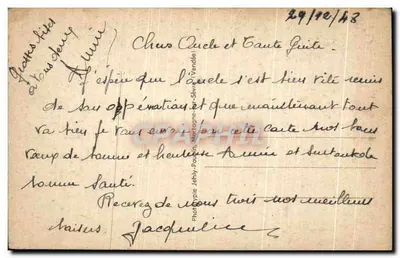 29/12/48
Grosses bises
à tous deux
Chers Oncle et Tante Guite.
J'espère que l'oncle s'est bien vite remis
de son opération et que maintenant tout
va bien je vous envoie par cette carte nos bons
vœux de bonne et heureuse Année et surtout de
bonne Santé.
Recevez de nous trois nos meilleurs
baisers Jacqueline
CARTOPHIE
Photographie Jehly-Poupin, Mortagne-sur-Sèvre (Vendée)